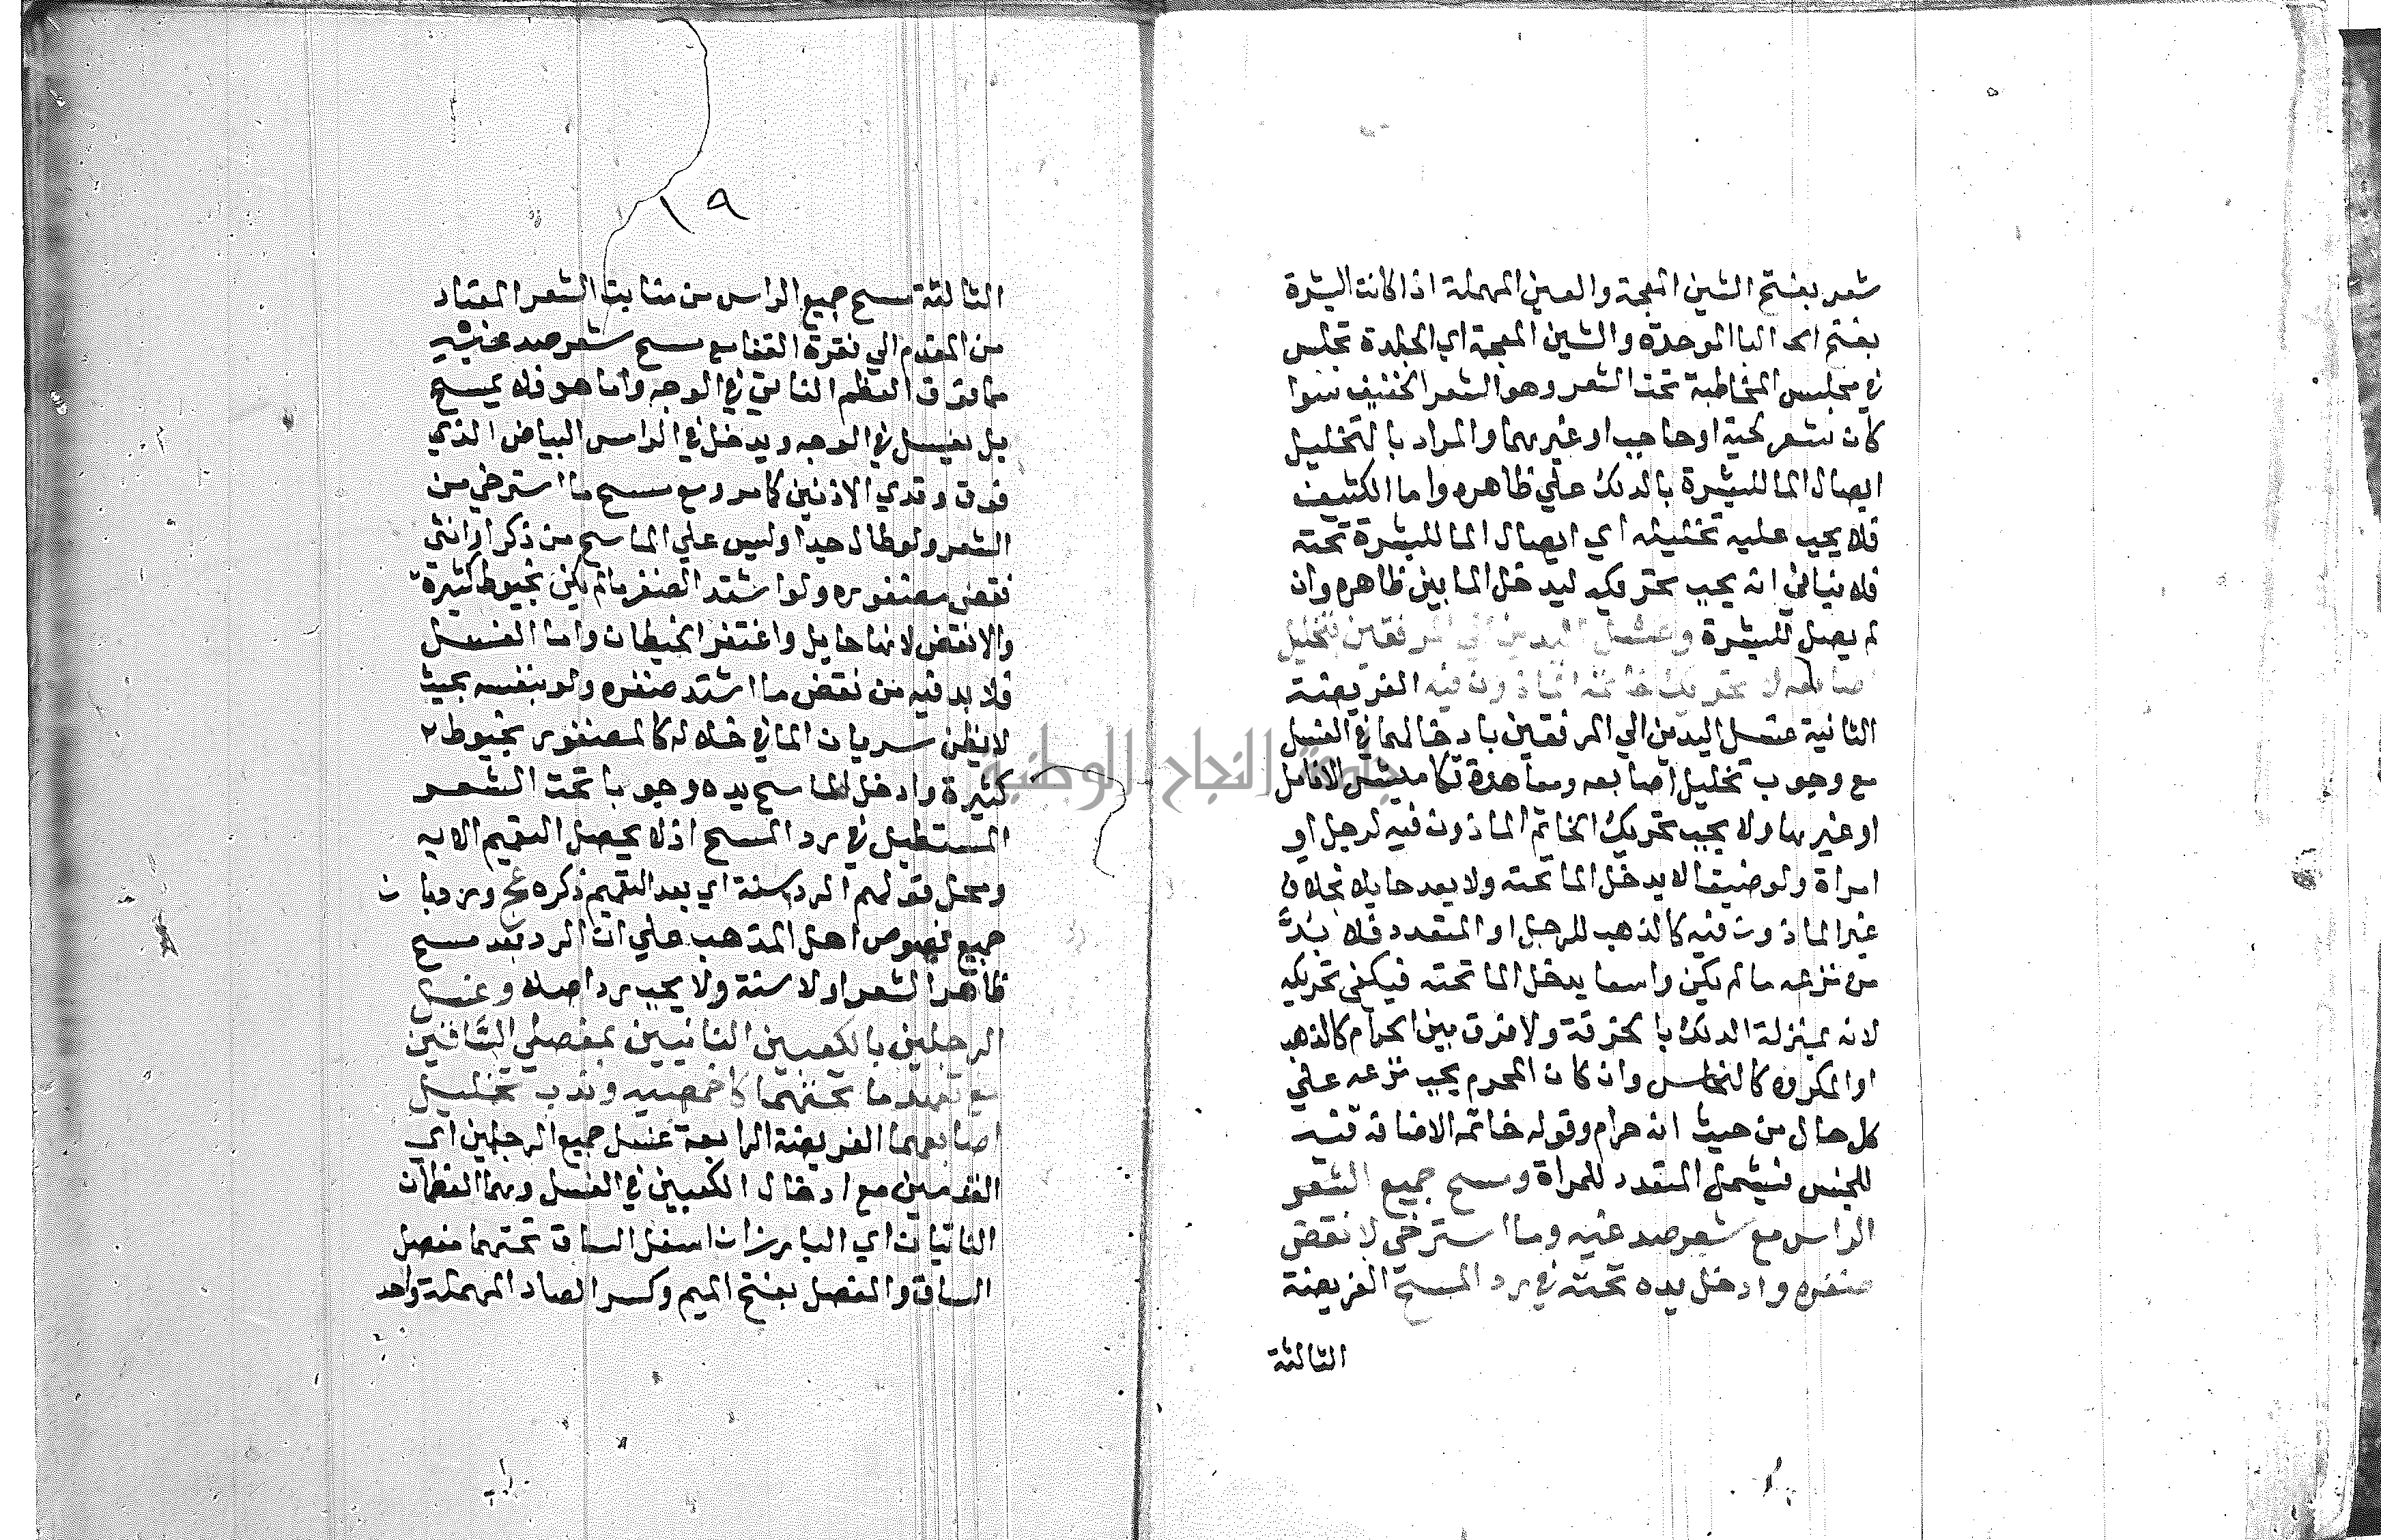 شعر بفتح الشين المعجمة والعين المهملة اذا كانت البشرة
بفتح اي الباالموحدة والشين المعجمة اي الجلدة تجلس
في مجلس المخاطبة تحت الشعر وهو الشعر الخفيف سوا
كان شعر لحية او حاجب او غيرهما والمراد بالتخليل
ايصال الما للبشرة بالدلك علي ظاهره واما الكثيف
فلا يجب عليه تخليله اي ايصال الما للبشرة تحته
فلا ينافي انه يجب تحريكه ليدخل الما بين ظاهره وان
لم يصل للبشرة وغسل اليدين الي المرفقين بتخليل
اصابعه لا تحريك خاتمه الماذون فيه الفريضة
الثانية غسل اليدين الي المرفقين بادخالهما في الغسل
مع وجوب تخليل اصابعه ومعاهدة تكاميش الانامل
او غيرها ولا يجب تحريك الخاتم الماذون فيه لرجل او
امراة ولو ضيقا لا يدخل الما تحته ولا يعد حايلا بخلاف
غير الماذون فيه كالذهب للرجل او المتعدد فلا بُدَّ
من نزعه ما لم يكن واسعا يدخل الما تحته فيكفي تحريكه
لانه بمنزلة الدلك بالخرقة ولا فرق بين الحرام كالذهب
او المكروه كالنحاس وان كان المحرم يجب نزعه علي
كل حال من حيث انه حرام وقوله خاتمه الاضافة فيه
للجنس فيشمل المتعدد للمراة ومسح جميع الشعر
الراس مع شعر صدغيه وما استرخي لا نقض
ضفره وادخل يده تحته في رد المسح الفريضة
الثالثة
١٩
الثالثة مسح جميع الراس من منابت الشعر المعتاد
من المقدم الي نقرة القفا مع مسح شعر صدغيه
مما فوق العظم الناتي في الوجه واما هو فلا يمسح
بل يغسل في الوجه ويدخل في الراس البياض الذي
فوق وتدي الاذنين كما مر ومع مسح ما استرخي من
الشعر ولو طال جدا وليس علي الماسح من ذكر او انثي
نقض مضفوره ولو اشتد الضفر ما لم يكن بخيوط كثيرة
والا نقض لانها حايل واغتفر الخيطان واما الغسل
فلا بد فيه من نقض ما اشتد ضفره ولو بنفسه بحيث
لا يظن سريان الما في خلاله كالمضفور بخيوط ٢
كثيرة وادخل الماسح يده وجوبا تحت الشعر
المستطيل في رد المسح اذ لا يحصل التعميم الا به
ومحل قولهم الرد سنة اي بعد التعميم ذكره عج ورد بان
جميع نصوص اهل المذهب علي ان الرد بعد مسح
ظاهر الشعر اولا سنة ولا يجب رد اصلا وغسل
الرجلين بالكعبين الناتيين بمفصلي السَّاقين
مع تعهد ما تحتهما كاخمصيه وندب تخليل
اصابعهما الفريضة الرابعة غسل جميع الرجلين اي
القدمين مع ادخال الكعبين في الغسل وهما العظمان
الناتيان اي البارزان اسفل الساق تحتهما مفصل
الساق والمفصل بفتح الميم وكسر الصاد المهملة واحد
جامعة النجاح الوطنية